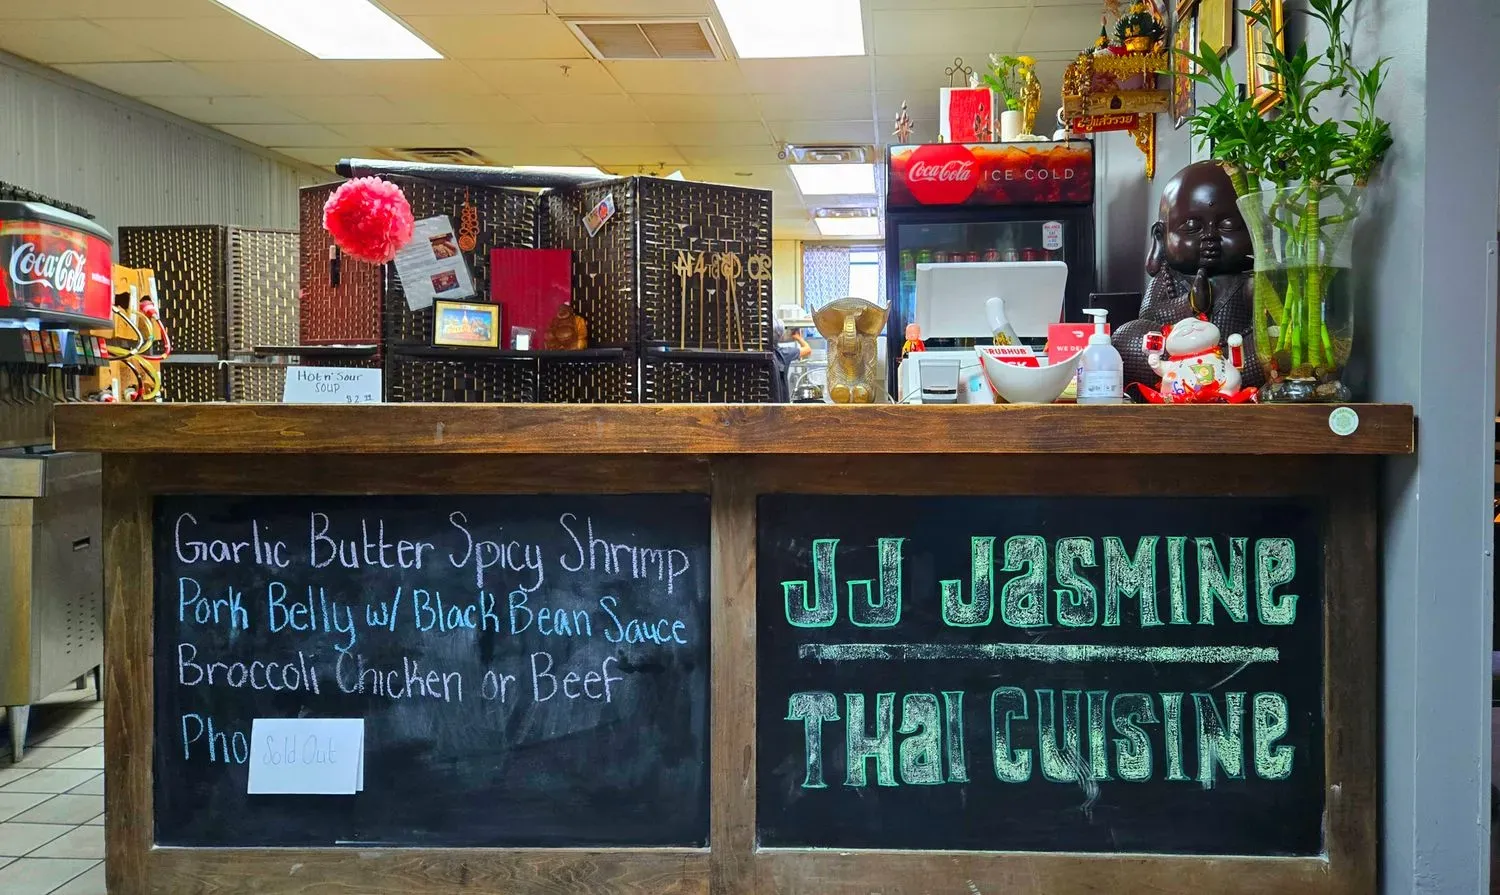 Coca-Cola
ICE COLD
อยู่แล้วรวย
Coca-Cola
Hot n' Sour
SOUP
$2.99
RUBHUB
WE DE
Garlic Butter Spicy Shrimp
Pork Belly w/ Black Bean Sauce
Broccoli Chicken or Beef
Pho
Sold Out
JJ JASMINE
THAI CUISINE